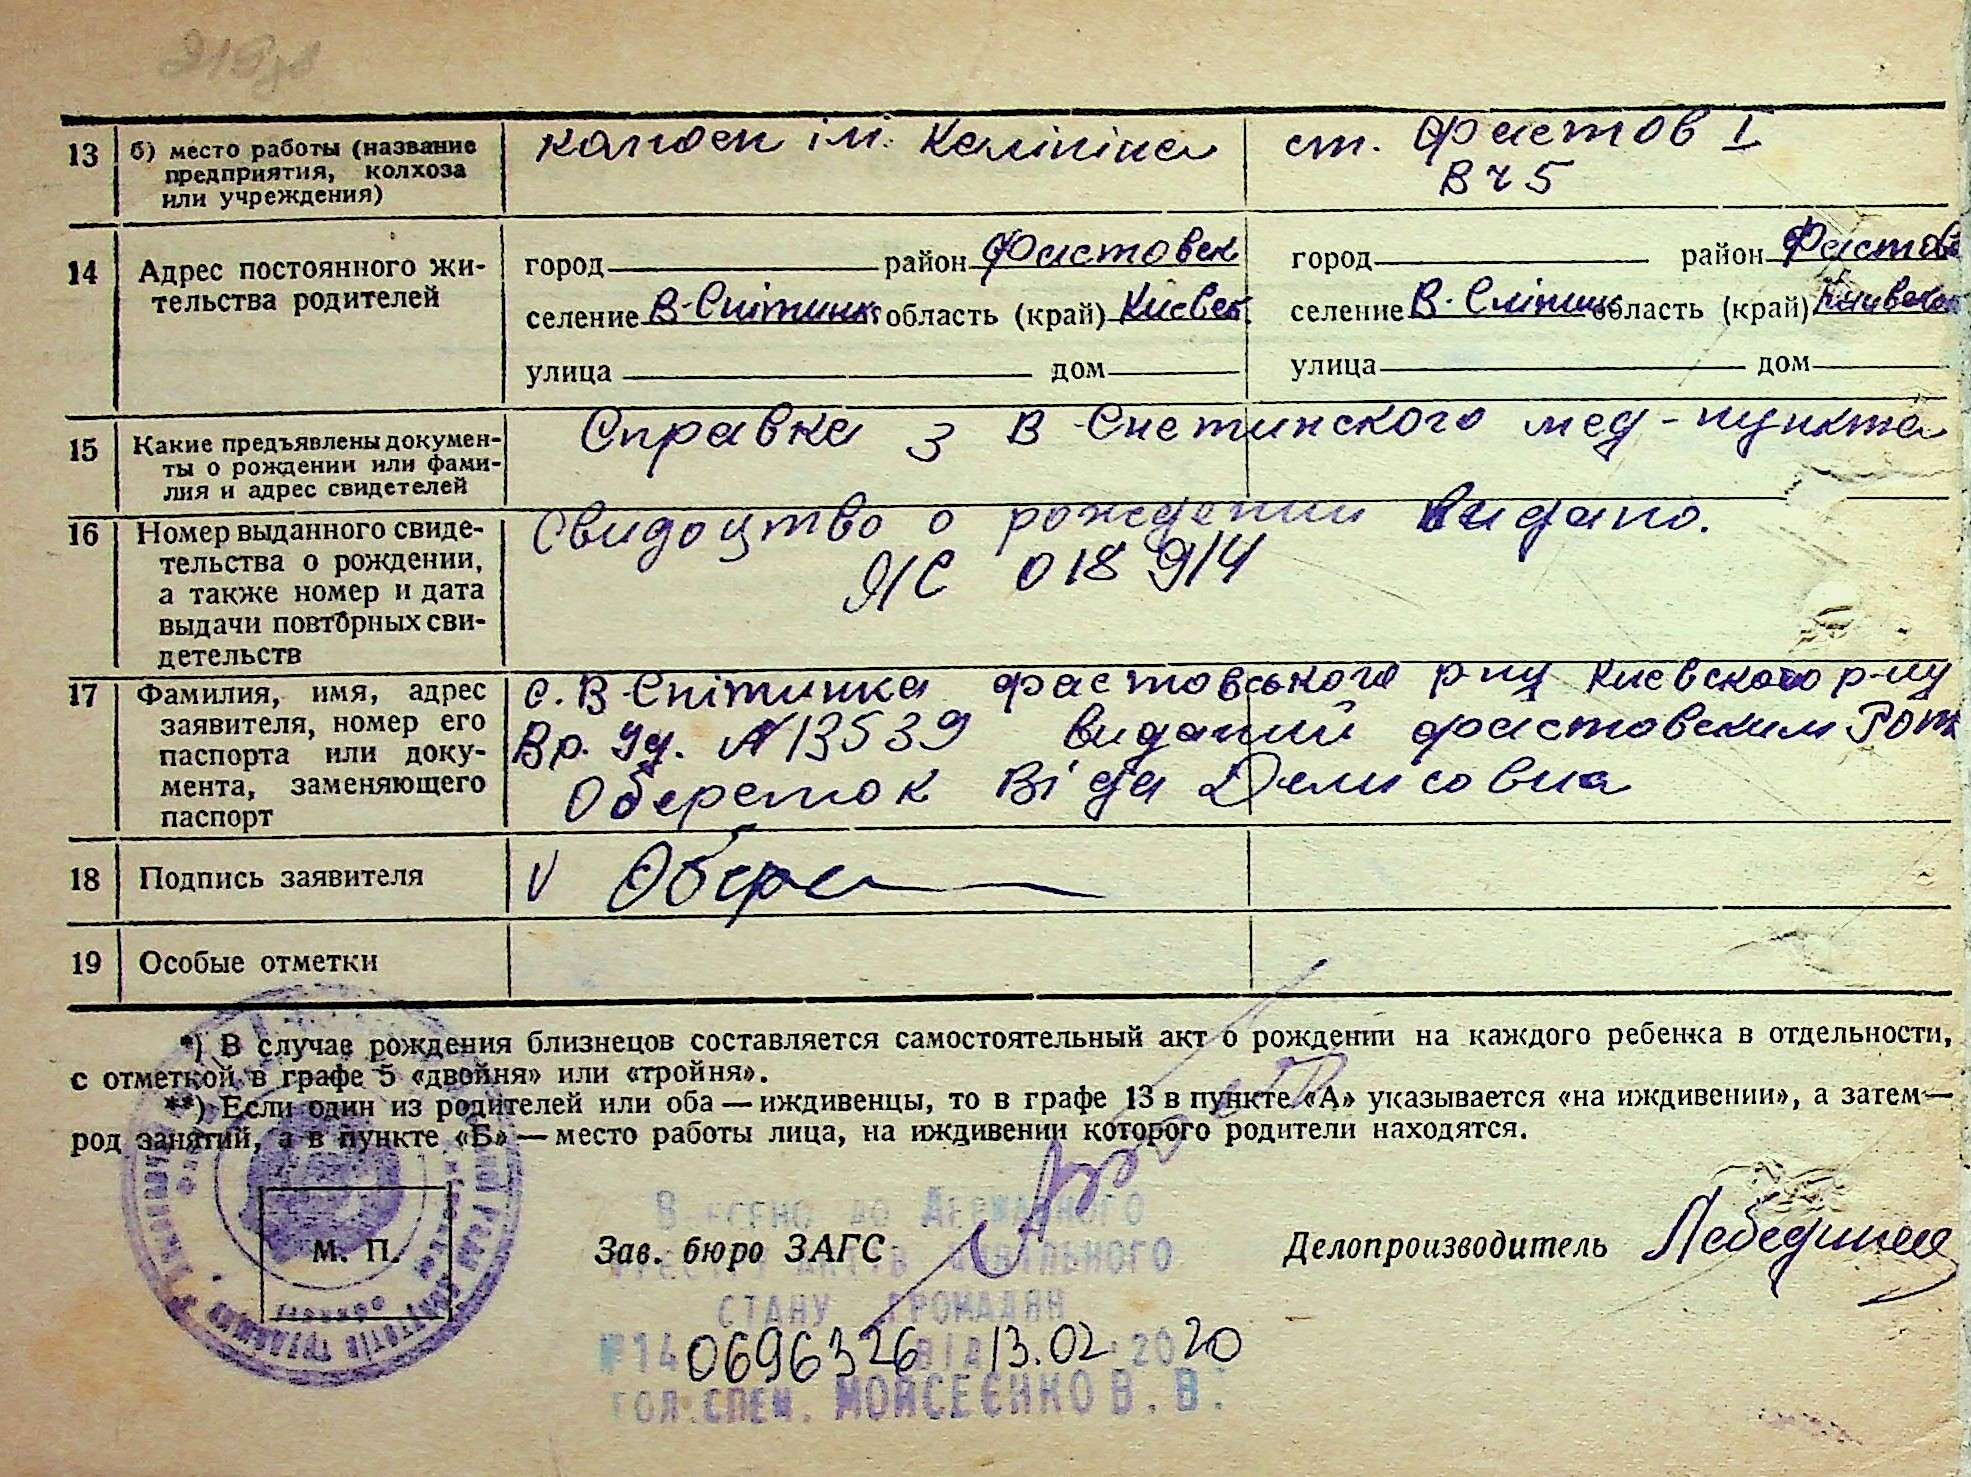 13 б) место работы (название предприятия, колхоза или учреждения)
колгосп ім. Калініна
ст. Фастов I
ВЧ 5
14 Адрес постоянного жительства родителей
город район Фастовск
селение В-Снітинка область (край) Києвск.
улица дом
город район Фастовс
селение В-Снітинк область (край)
улица дом
15 Какие предъявлены документы о рождении или фамилия и адрес свидетелей
Справка з В-Снетинского мед-пункта
16 Номер выданного свидетельства о рождении, а также номер и дата выдачи повторных свидетельств
Свидоцтво о рождении видано.
ЯС 018914
17 Фамилия, имя, адрес заявителя, номер его паспорта или документа, заменяющего паспорт
с. В-Снітинка фастовського р-ну Киевского р-ну
Вр. Уд. № 13539 виданий фастовским
Обереток Віда Денисовна
18 Подпись заявителя
V Обере
19 Особые отметки
*) В случае рождения близнецов составляется самостоятельный акт о рождении на каждого ребенка в отдельности,
с отметкой в графе 5 «двойня» или «тройня».
**) Если один из родителей или оба — иждивенцы, то в графе 13 в пункте «А» указывается «на иждивении», а затем —
род занятий, а в пункте «Б» — место работы лица, на иждивении которого родители находятся.
М. П.
Внесено до Державного
Зав. бюро ЗАГС
Делопроизводитель
реєстру актів цивільного
стану громадян
№ 140696326 від 13.02.2020
гол.спец. МОЙСЕЄНКО В. В.